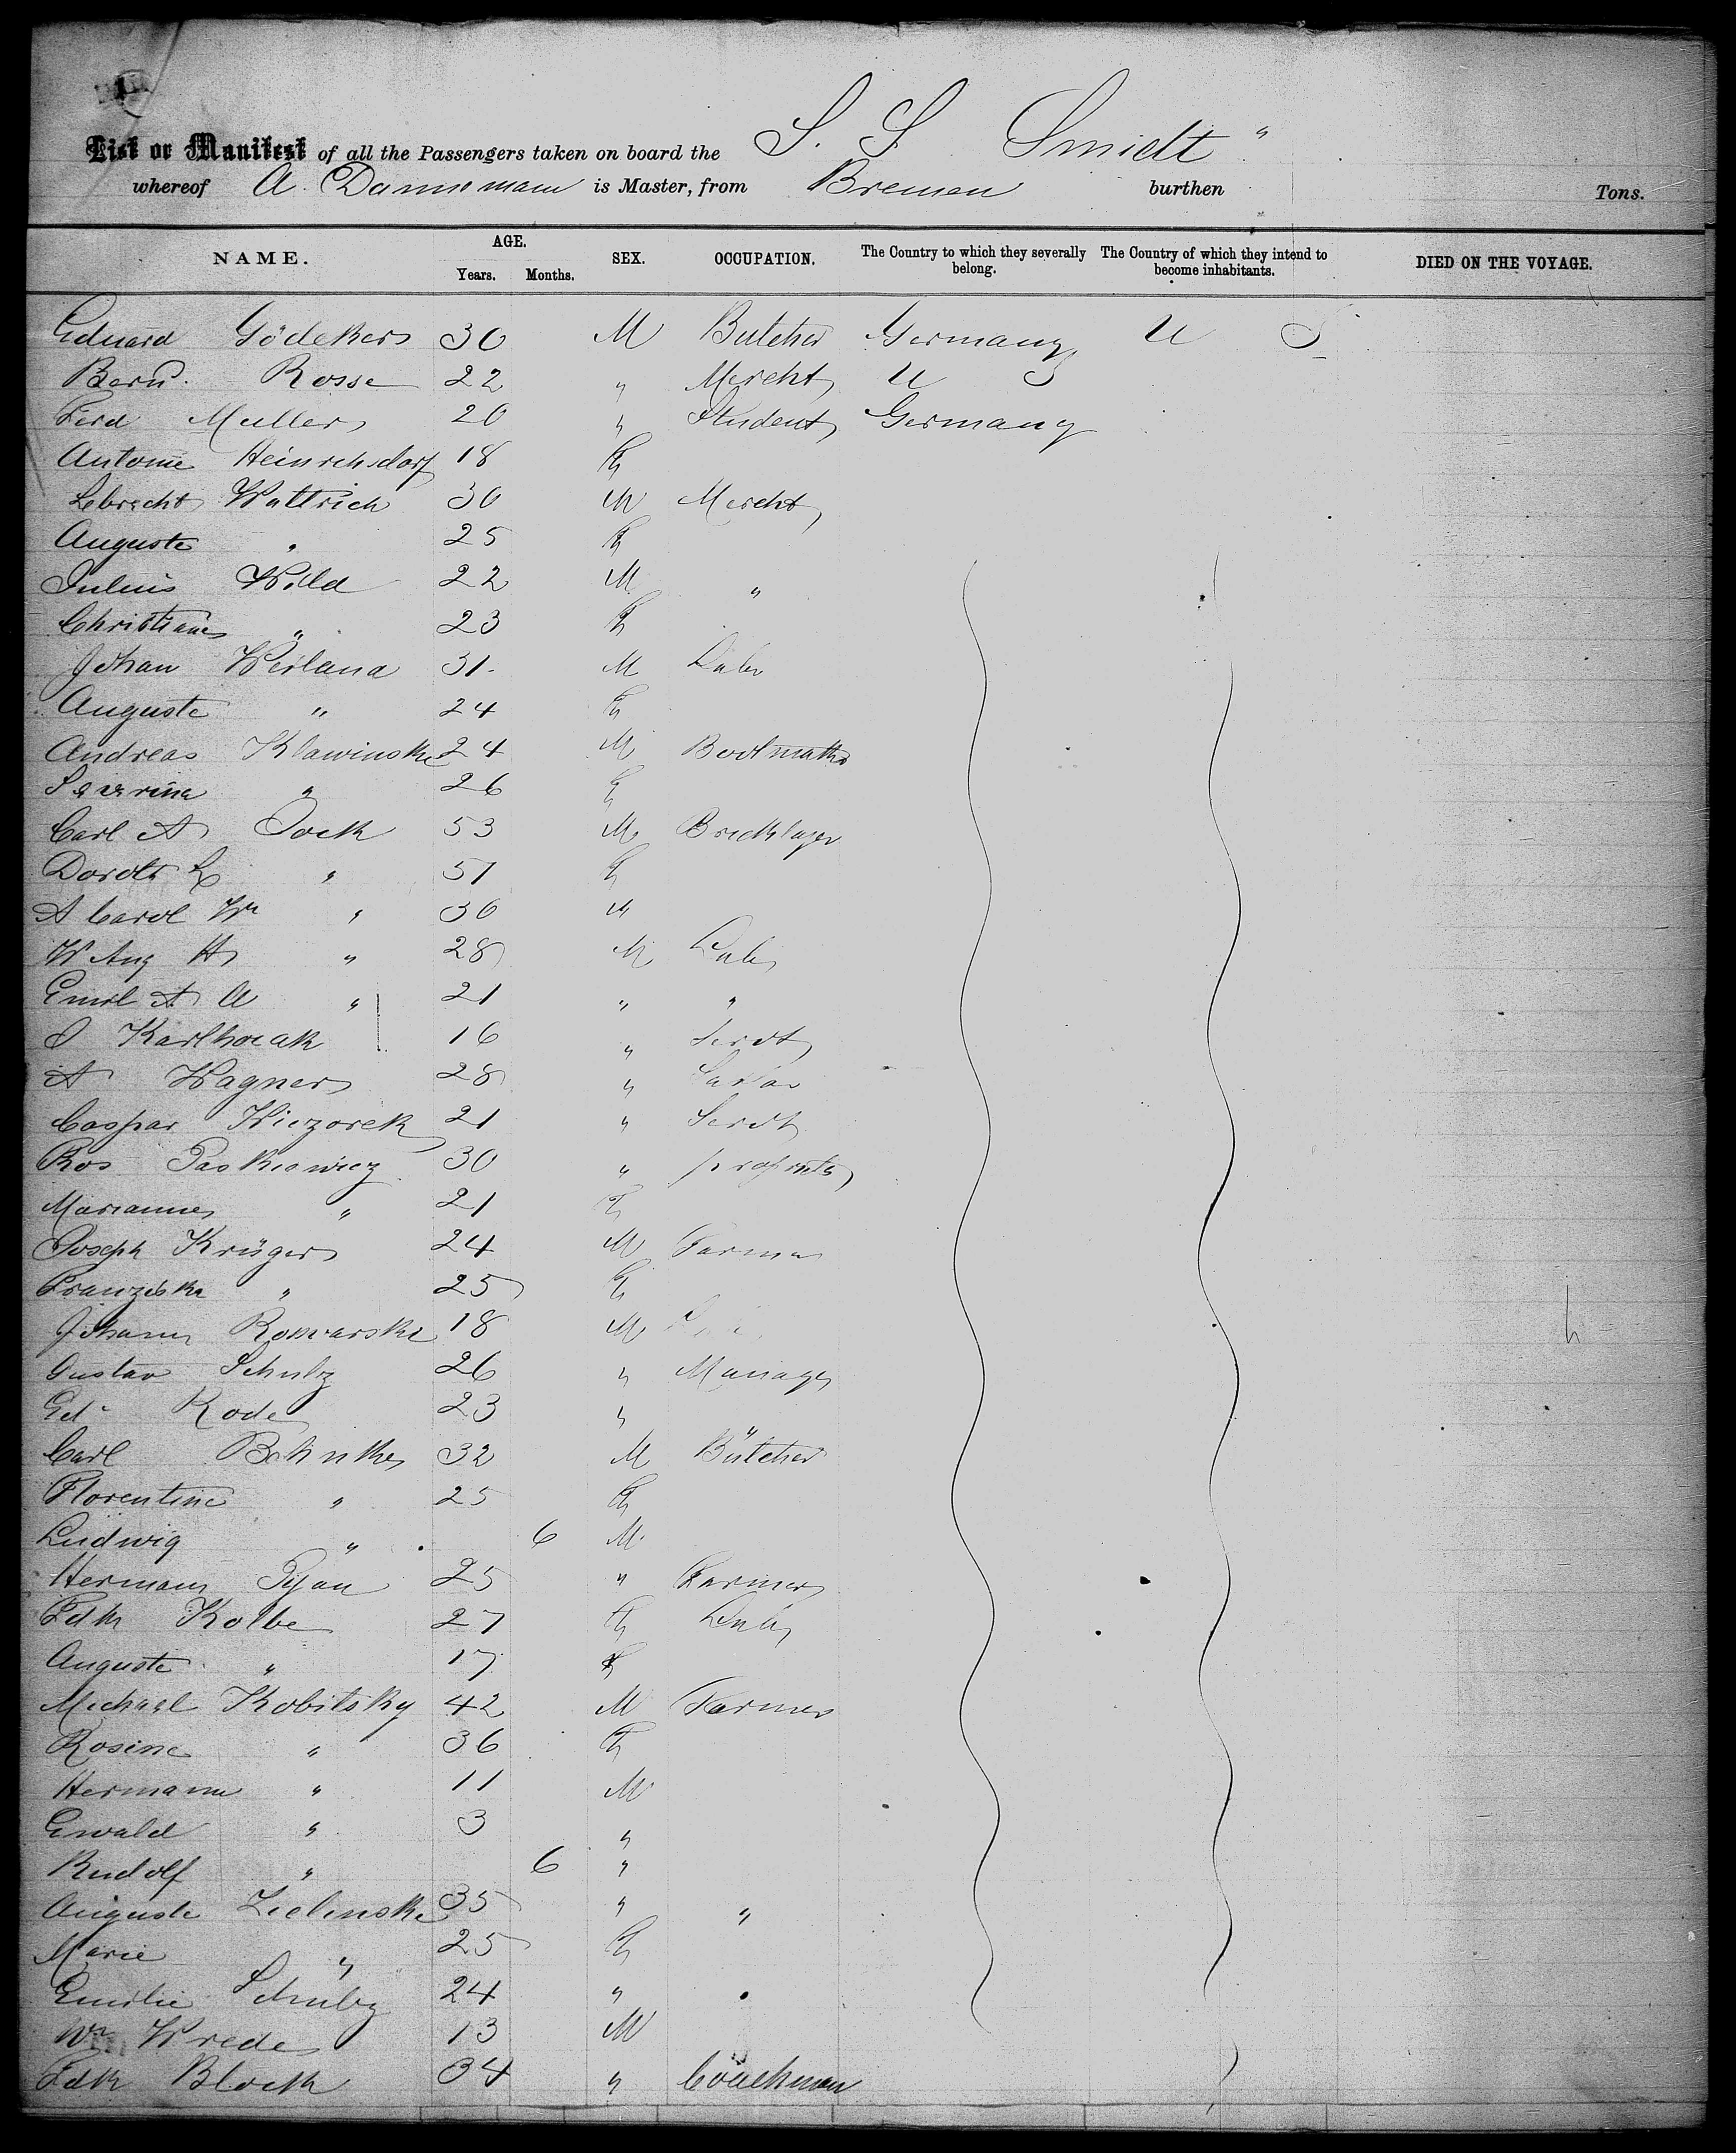 List or Manifest of all the Passengers taken on board the S. S. Smidt "
whereof A. Dannemann is Master, from Bremen burthen Tons.
NAME. AGE. Years. Months. SEX. OCCUPATION. The Country to which they severally belong. The Country of which they intend to become inhabitants. DIED ON THE VOYAGE.
Eduard Gödeker 30 M Butcher Germany U S
Bernd. Rosse 22 " Mercht U S
Ferd Muller 20 " Student Germany
Antonie Heinrichsdorf 18 F
Lebrecht Wattrich 30 M Mercht
Auguste " 25 F
Julius Wild 22 M "
Christiane " 23 F
Johan Weiland 31 M Labr
Auguste " 24 F
Andreas Klawinski 24 M Bootmaker
" 26 F
Carl A Jock 53 M Bricklayer
Doroth L " 51 F
A Carol Wn " 30 M
W Aug H " 28 M Labr
Emil A A " 21 " "
J 16 " Servt
A Wagner 28 "
Caspar Wiezorek 21 " Servt
Ros Paskiewicz 30 "
Marianne " 21 F
Joseph Krüger 24 M Farmer
Franziska " 25 F
Johann 18 M
Gustav Schulz 26 " Manager
Ed. Rode 23 "
Carl Bohnke 32 M Butcher
Florentine " 25 F
Ludwig " 6 M
Hermann 25 " Farmer
Fdk Kolbe 27 F Labr
Auguste " 17 F
Michael Kobitsky 42 M Farmer
Rosine " 36 F
Hermann " 11 M
Ewald " 3 "
Rudolf " 6 "
Auguste Zielinski 35 " "
Marie " 25 F
Emilie Schulz 24 "
Wm Wrede 13 M
Fdk Block 34 " Coachman